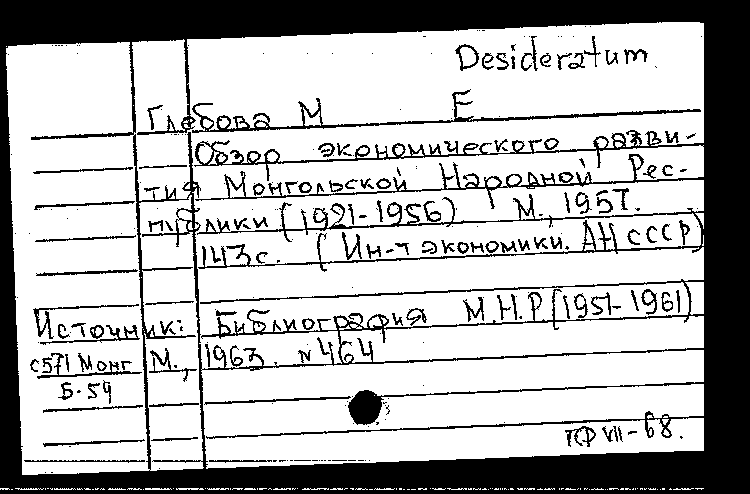 Desideratum
Глебова М Е
Обзор экономического разви-
тия Монгольской Народной Рес-
публики (1921-1956) М., 1957.
143с. (Ин-т экономики. АН СССР)
Источник: Библиография М.Н.Р. (1951-1961)
с571 Монг М., 1963. №464
Б-59
VII-68.